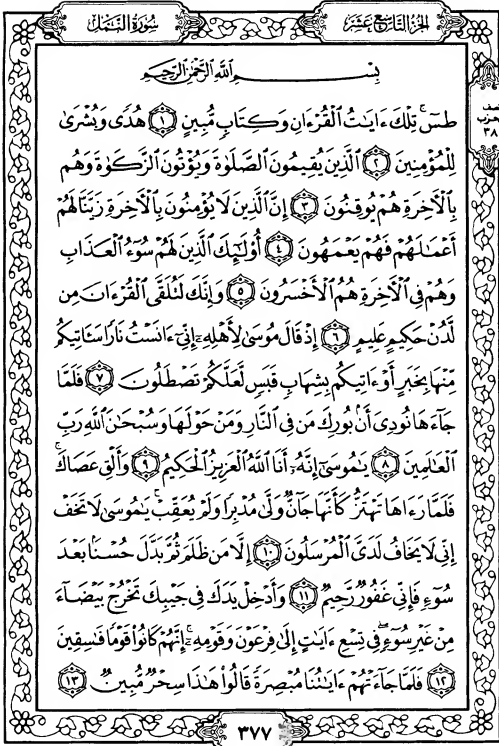 سُورَةُ النَّمْلِ
الجُزءُ التَّاسِعَ عَشَرَ
بِسْمِ اللَّهِ الرَّحْمَٰنِ الرَّحِيمِ
طسٓۚ تِلْكَ ءَايَٰتُ ٱلْقُرْءَانِ وَكِتَابٍ مُّبِينٍ ١ هُدًى وَبُشْرَىٰ
لِلْمُؤْمِنِينَ ٢ ٱلَّذِينَ يُقِيمُونَ ٱلصَّلَوٰةَ وَيُؤْتُونَ ٱلزَّكَوٰةَ وَهُم
بِٱلْأَخِرَةِ هُمْ يُوقِنُونَ ٣ إِنَّ ٱلَّذِينَ لَا يُؤْمِنُونَ بِٱلْأَخِرَةِ زَيَّنَّا لَهُمْ
أَعْمَٰلَهُمْ فَهُمْ يَعْمَهُونَ ٤ أُوْلَٰٓئِكَ ٱلَّذِينَ لَهُمْ سُوٓءُ ٱلْعَذَابِ
وَهُمْ فِى ٱلْأَخِرَةِ هُمُ ٱلْأَخْسَرُونَ ٥ وَإِنَّكَ لَتُلَقَّى ٱلْقُرْءَانَ مِن
لَّدُنْ حَكِيمٍ عَلِيمٍ ٦ إِذْ قَالَ مُوسَىٰ لِأَهْلِهِۦٓ إِنِّىٓ ءَانَسْتُ نَارًا سَـَٔاتِيكُم
مِّنْهَا بِخَبَرٍ أَوْ ءَاتِيكُم بِشِهَابٍ قَبَسٍ لَّعَلَّكُمْ تَصْطَلُونَ ٧ فَلَمَّا
جَآءَهَا نُودِىَ أَنۢ بُورِكَ مَن فِى ٱلنَّارِ وَمَنْ حَوْلَهَا وَسُبْحَٰنَ ٱللَّهِ رَبِّ
ٱلْعَٰلَمِينَ ٨ يَٰمُوسَىٰٓ إِنَّهُۥٓ أَنَا ٱللَّهُ ٱلْعَزِيزُ ٱلْحَكِيمُ ٩ وَأَلْقِ عَصَاكَۚ
فَلَمَّا رَءَاهَا تَهْتَزُّ كَأَنَّهَا جَآنٌّ وَلَّىٰ مُدْبِرًا وَلَمْ يُعَقِّبْۚ يَٰمُوسَىٰ لَا تَخَفْ
إِنِّى لَا يَخَافُ لَدَىَّ ٱلْمُرْسَلُونَ ١٠ إِلَّا مَن ظَلَمَ ثُمَّ بَدَّلَ حُسْنًۢا بَعْدَ
سُوٓءٍ فَإِنِّى غَفُورٌ رَّحِيمٌ ١١ وَأَدْخِلْ يَدَكَ فِى جَيْبِكَ تَخْرُجْ بَيْضَآءَ
مِنْ غَيْرِ سُوٓءٍۖ فِى تِسْعِ ءَايَٰتٍ إِلَىٰ فِرْعَوْنَ وَقَوْمِهِۦٓۚ إِنَّهُمْ كَانُواْ قَوْمًا فَٰسِقِينَ
١٢ فَلَمَّا جَآءَتْهُمْ ءَايَٰتُنَا مُبْصِرَةً قَالُواْ هَٰذَا سِحْرٌ مُّبِينٌ ١٣
٣٧٧
٣٨